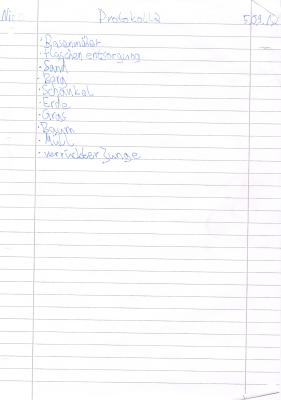 Nic Protokoll 2 5.09.12
· Rasenmäher
· Flaschen entsorgung
· Sand
· Berg
· Schaukel
· Erde
· Gras
· Baum
· Müll
· verrückter Junge